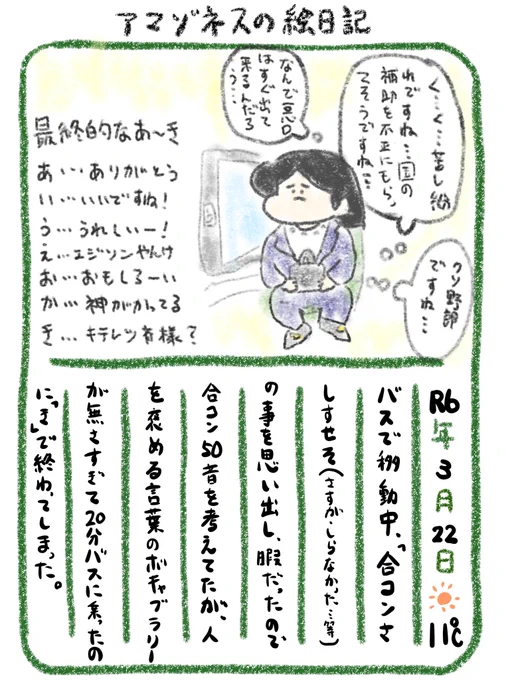 アマゾネスの絵日記
く…く…苦し紛
れですね…国の
補助を不正にもらっ
てそうですね…
なんで悪口
はすぐ出て
来るんだろ
う…
クソ野郎
ですね…
最終的なあ〜き
あ…ありがとう
い…いいですね!
う…うれしいー!
え…エジソンやんけ
お…おもしろーい
か…神がかってる
き…キテレツ者様?
R6年3月22日 11℃
バスで移動中、「合コンさ
しすせそ(さすが、しらなかった…等)
の事を思い出し、暇だったので
合コン50音を考えてたが、人
を褒める言葉のボキャブラリー
が無さすぎて20分バスに乗ったの
に「き」で終わってしまった。